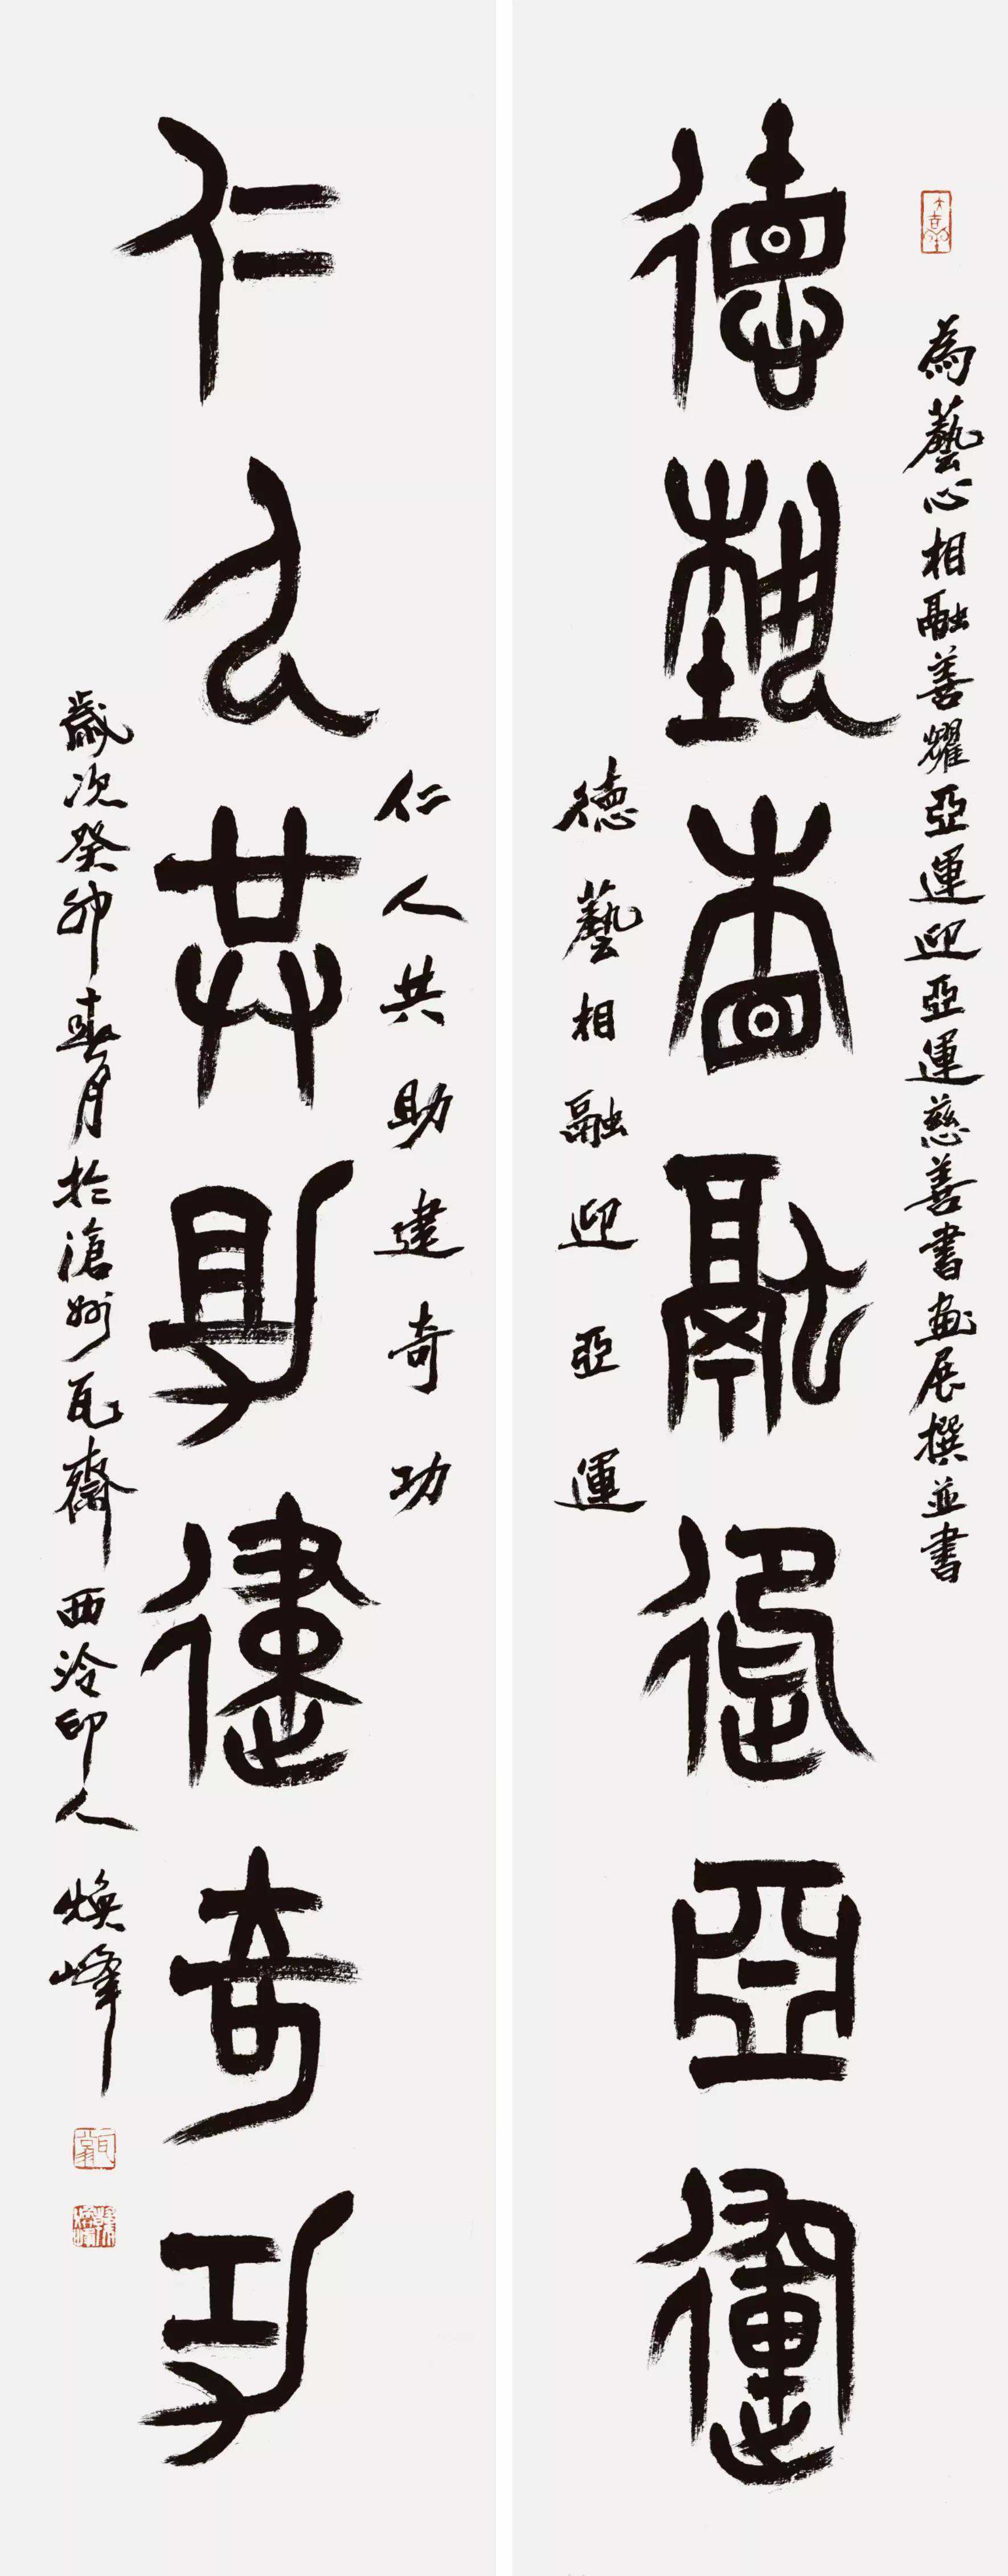 為藝心相融善耀亞運迎亞運慈善書畫展撰並書
德藝相融迎亞運
德藝相融迎亞運
仁人共助建奇功
仁人共助建奇功
歲次癸卯春月於滄州瓦齋西泠印人煥峰